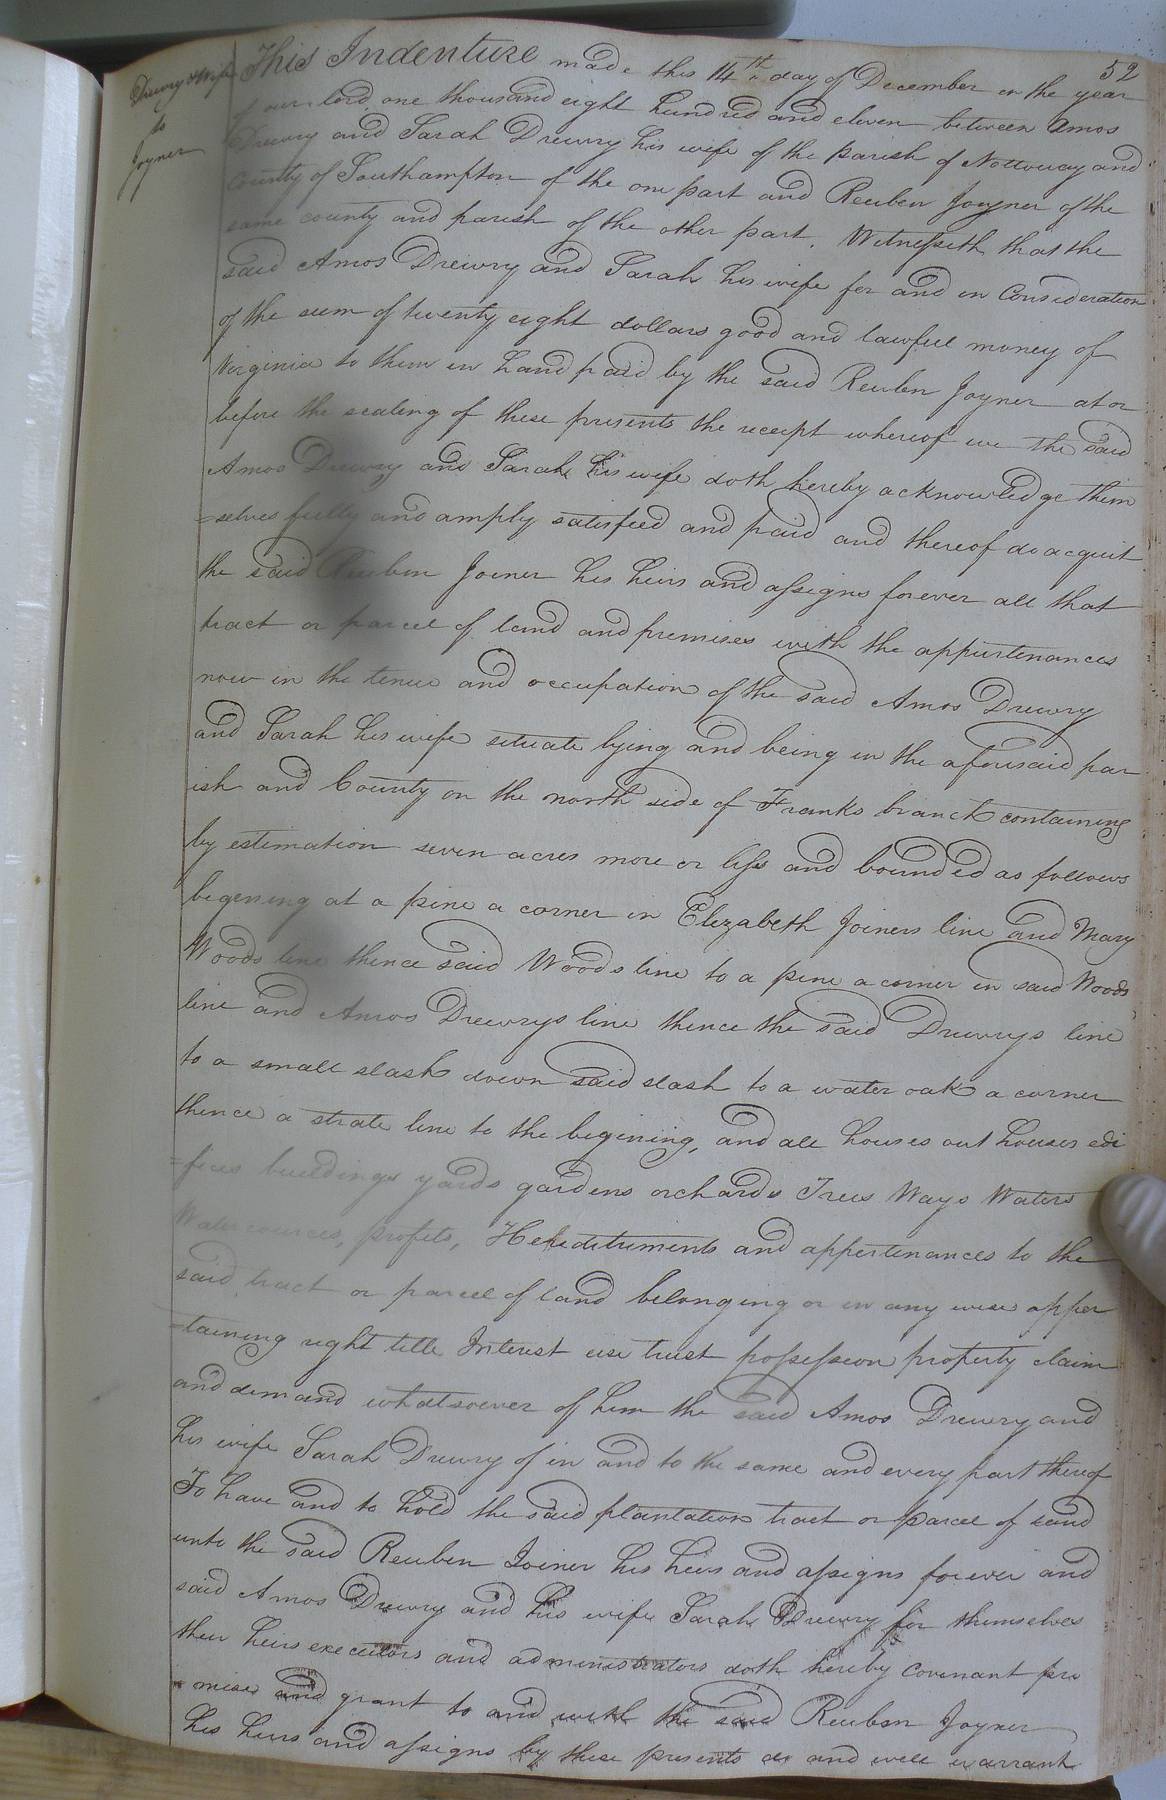 52
Drewry & Wife
to
Joyner
This Indenture made this 14th day of December in the year
of our lord one thousand eight hundred and eleven between Amos
Drewry and Sarah Drewry his wife of the parish of Nottoway and
County of Southampton of the one part and Reuben Joyner of the
same county and parish of the other part. Witnesseth that the
said Amos Drewry and Sarah his wife for and in Consideration
of the sum of twenty eight dollars good and lawfull money of
Virginia to them in hand paid by the said Reuben Joyner at or
before the sealing of these presents the receipt whereof we the said
Amos Drewry and Sarah his wife doth hereby acknowledge them
=selves fully and amply satisfied and paid and thereof do acquit
the said Reuben Joiner his heirs and assigns forever all that
tract or parcel of land and premises with the appurtenances
now in the tenue and occupation of the said Amos Drewry
and Sarah his wife situate lying and being in the aforesaid par
ish and County on the north side of Franks branch containing
by estimation seven acres more or less and bounded as follows
begening at a pine a corner in Elizabeth Joiners line and Mary
Woods line thence said Woods line to a pine a corner in said Woods
line and Amos Drewrys line thence the said Drewrys line
to a small slash down said slash to a water oak a corner
thence a strate line to the begining, and all houses out houses edi
=fices buildings yards gardens orchards Trees Ways Waters
Watercources, profits, Hereditruments and appertenances to the
said tract or parcel of land belonging or in any wise apper
=taining right title Interest use trust possession property claim
and demand whatsoever of him the said Amos Drewry and
his wife Sarah Drewry of in and to the same and every part thereof
To have and to hold the said plantation tract or parcel of land
unto the said Reuben Joiner his heirs and assigns forever and
said Amos Drewry and his wife Sarah Drewry for themselves
their heirs executors and administrators doth hereby covenant pro
=mise and grant to and with the said Reuben Joyner
his heirs and assigns by these presents do and will warrant